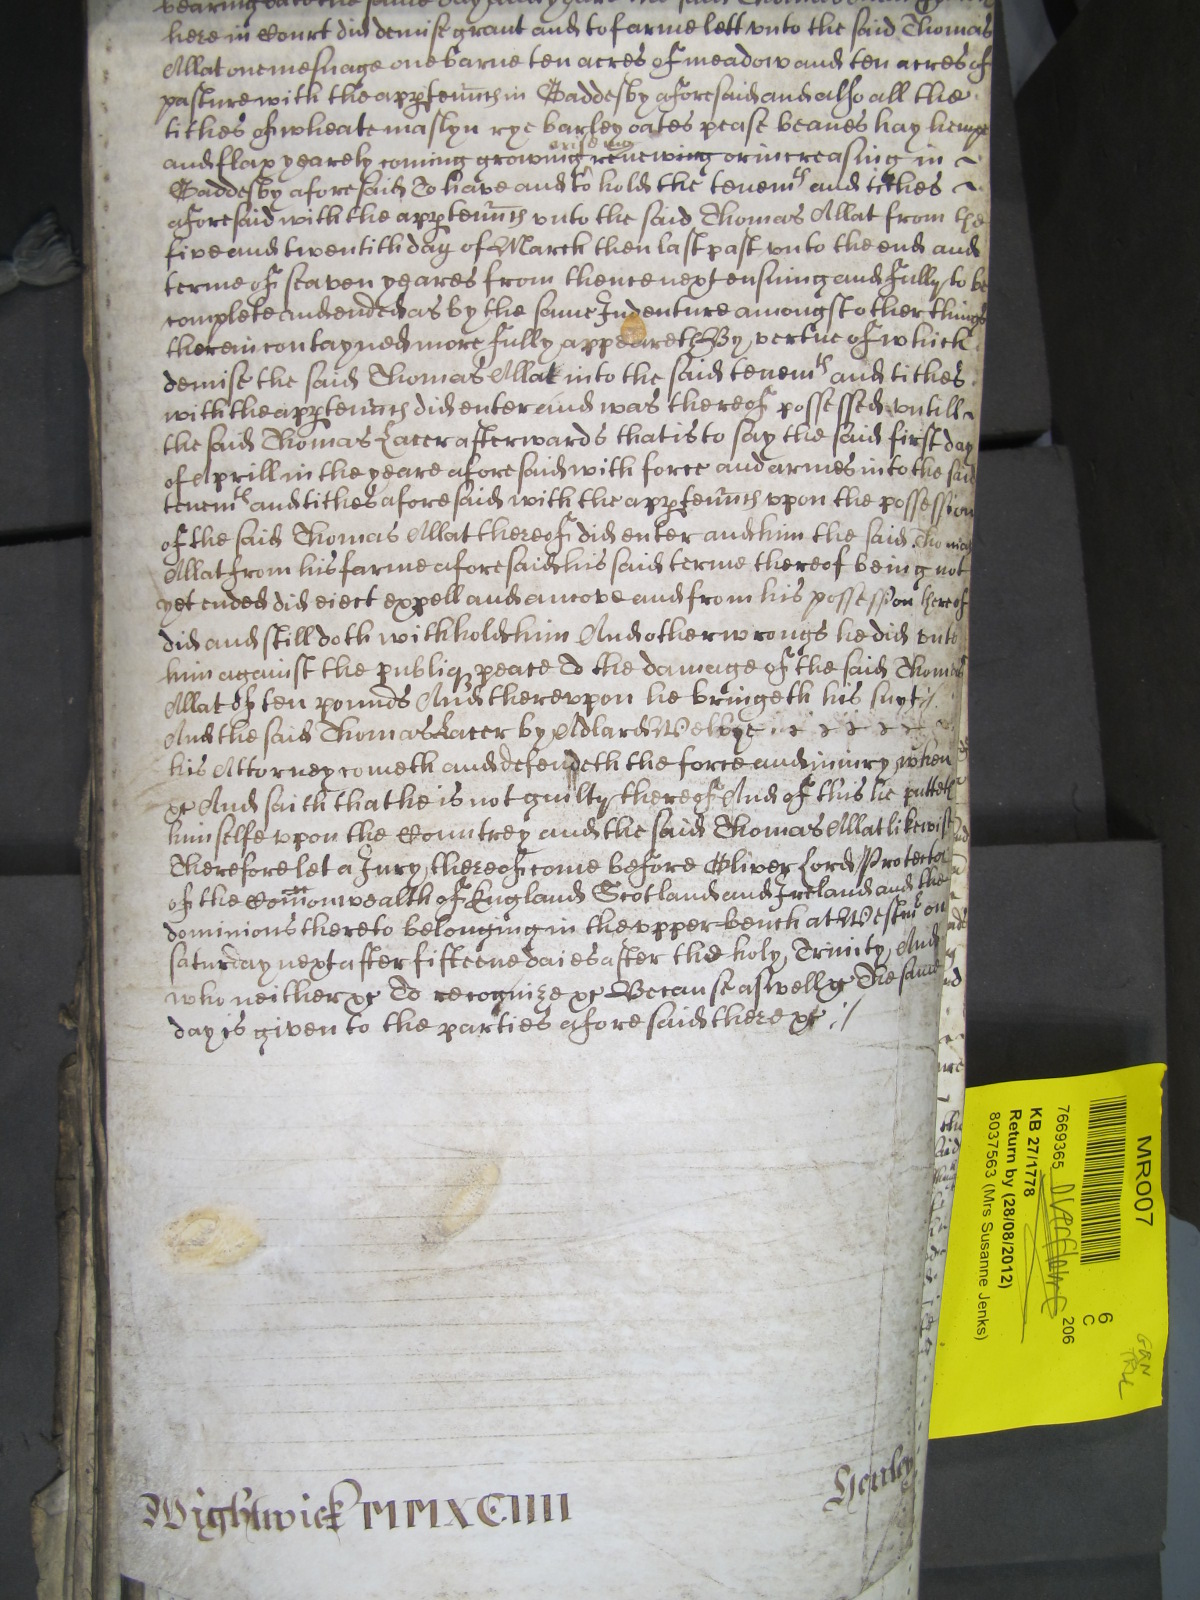 bearing date the same day and yeare the said Thomas
here in Court did demise grant and to farme lett vnto the said Thomas
Allat one mesuage one barne ten acres of meadow and ten acres of
pasture with the apprtenncs in Gaddesby aforesaid and also all the
tithes of wheate maslyn rye barley oates pease beanes hay hempe
and flax yearely coming growing ariseing renewing or increasing in ~
Gaddesby aforesaid To have and to hold the tenemts and tithes ~
aforesaid with the apprtenncs vnto the said Thomas Allat from the
five and twentith day of March then last past vnto the end and
terme of seaven yeares from thence next ensuing and fully to be
complete and ended as by the same Indenture amongst other things
therein contayned more fully appeareth By vertue of which
demise the said Thomas Allat into the said tenemts and tithes
with the apprtenncs did enter and was thereof possessed vntill ~
the said Thomas Lacer afterwards that is to say the said first day
of Aprill in the yeare aforesaid with force and armes into the said
tenemts and tithes aforesaid with the apprtenncs vpon the possession
of the said Thomas Allat thereof did enter and him the said Thomas
Allat from his farme aforesaid his said terme thereof being not
yet ended did eiect expell and amove and from his possession thereof
did and still doth withhold him And other wrongs he did vnto
him against the publiq peace To the damage of the said Thomas
Allat of ten pounds And therevpon he bringeth his suyt //
And the said Thomas Lacer by Adlard Welbye
his Attorney cometh and defendeth the force and iniury when
&c And saith that he is not guilty thereof And of this he putteth
himselfe vpon the Countrey and the said Thomas Allat likewise
Therefore let a Jury thereof come before Oliver Lord Protector
of the Comonwealth of England Scotland and Ireland and the
dominions thereto belonging in the vpper bench at Westmr on
saturday next after fifteene daies after the holy Trinity And
who neither &c To recognize &c Because aswell &c The same
day is given to the parties aforesaid there &c //
Wightwick MMXCIIII
Henley
MR007
7669365
KB 27/1778
Return by (28/08/2012)
8037563 (Mrs Susanne Jenks)
206
6
C